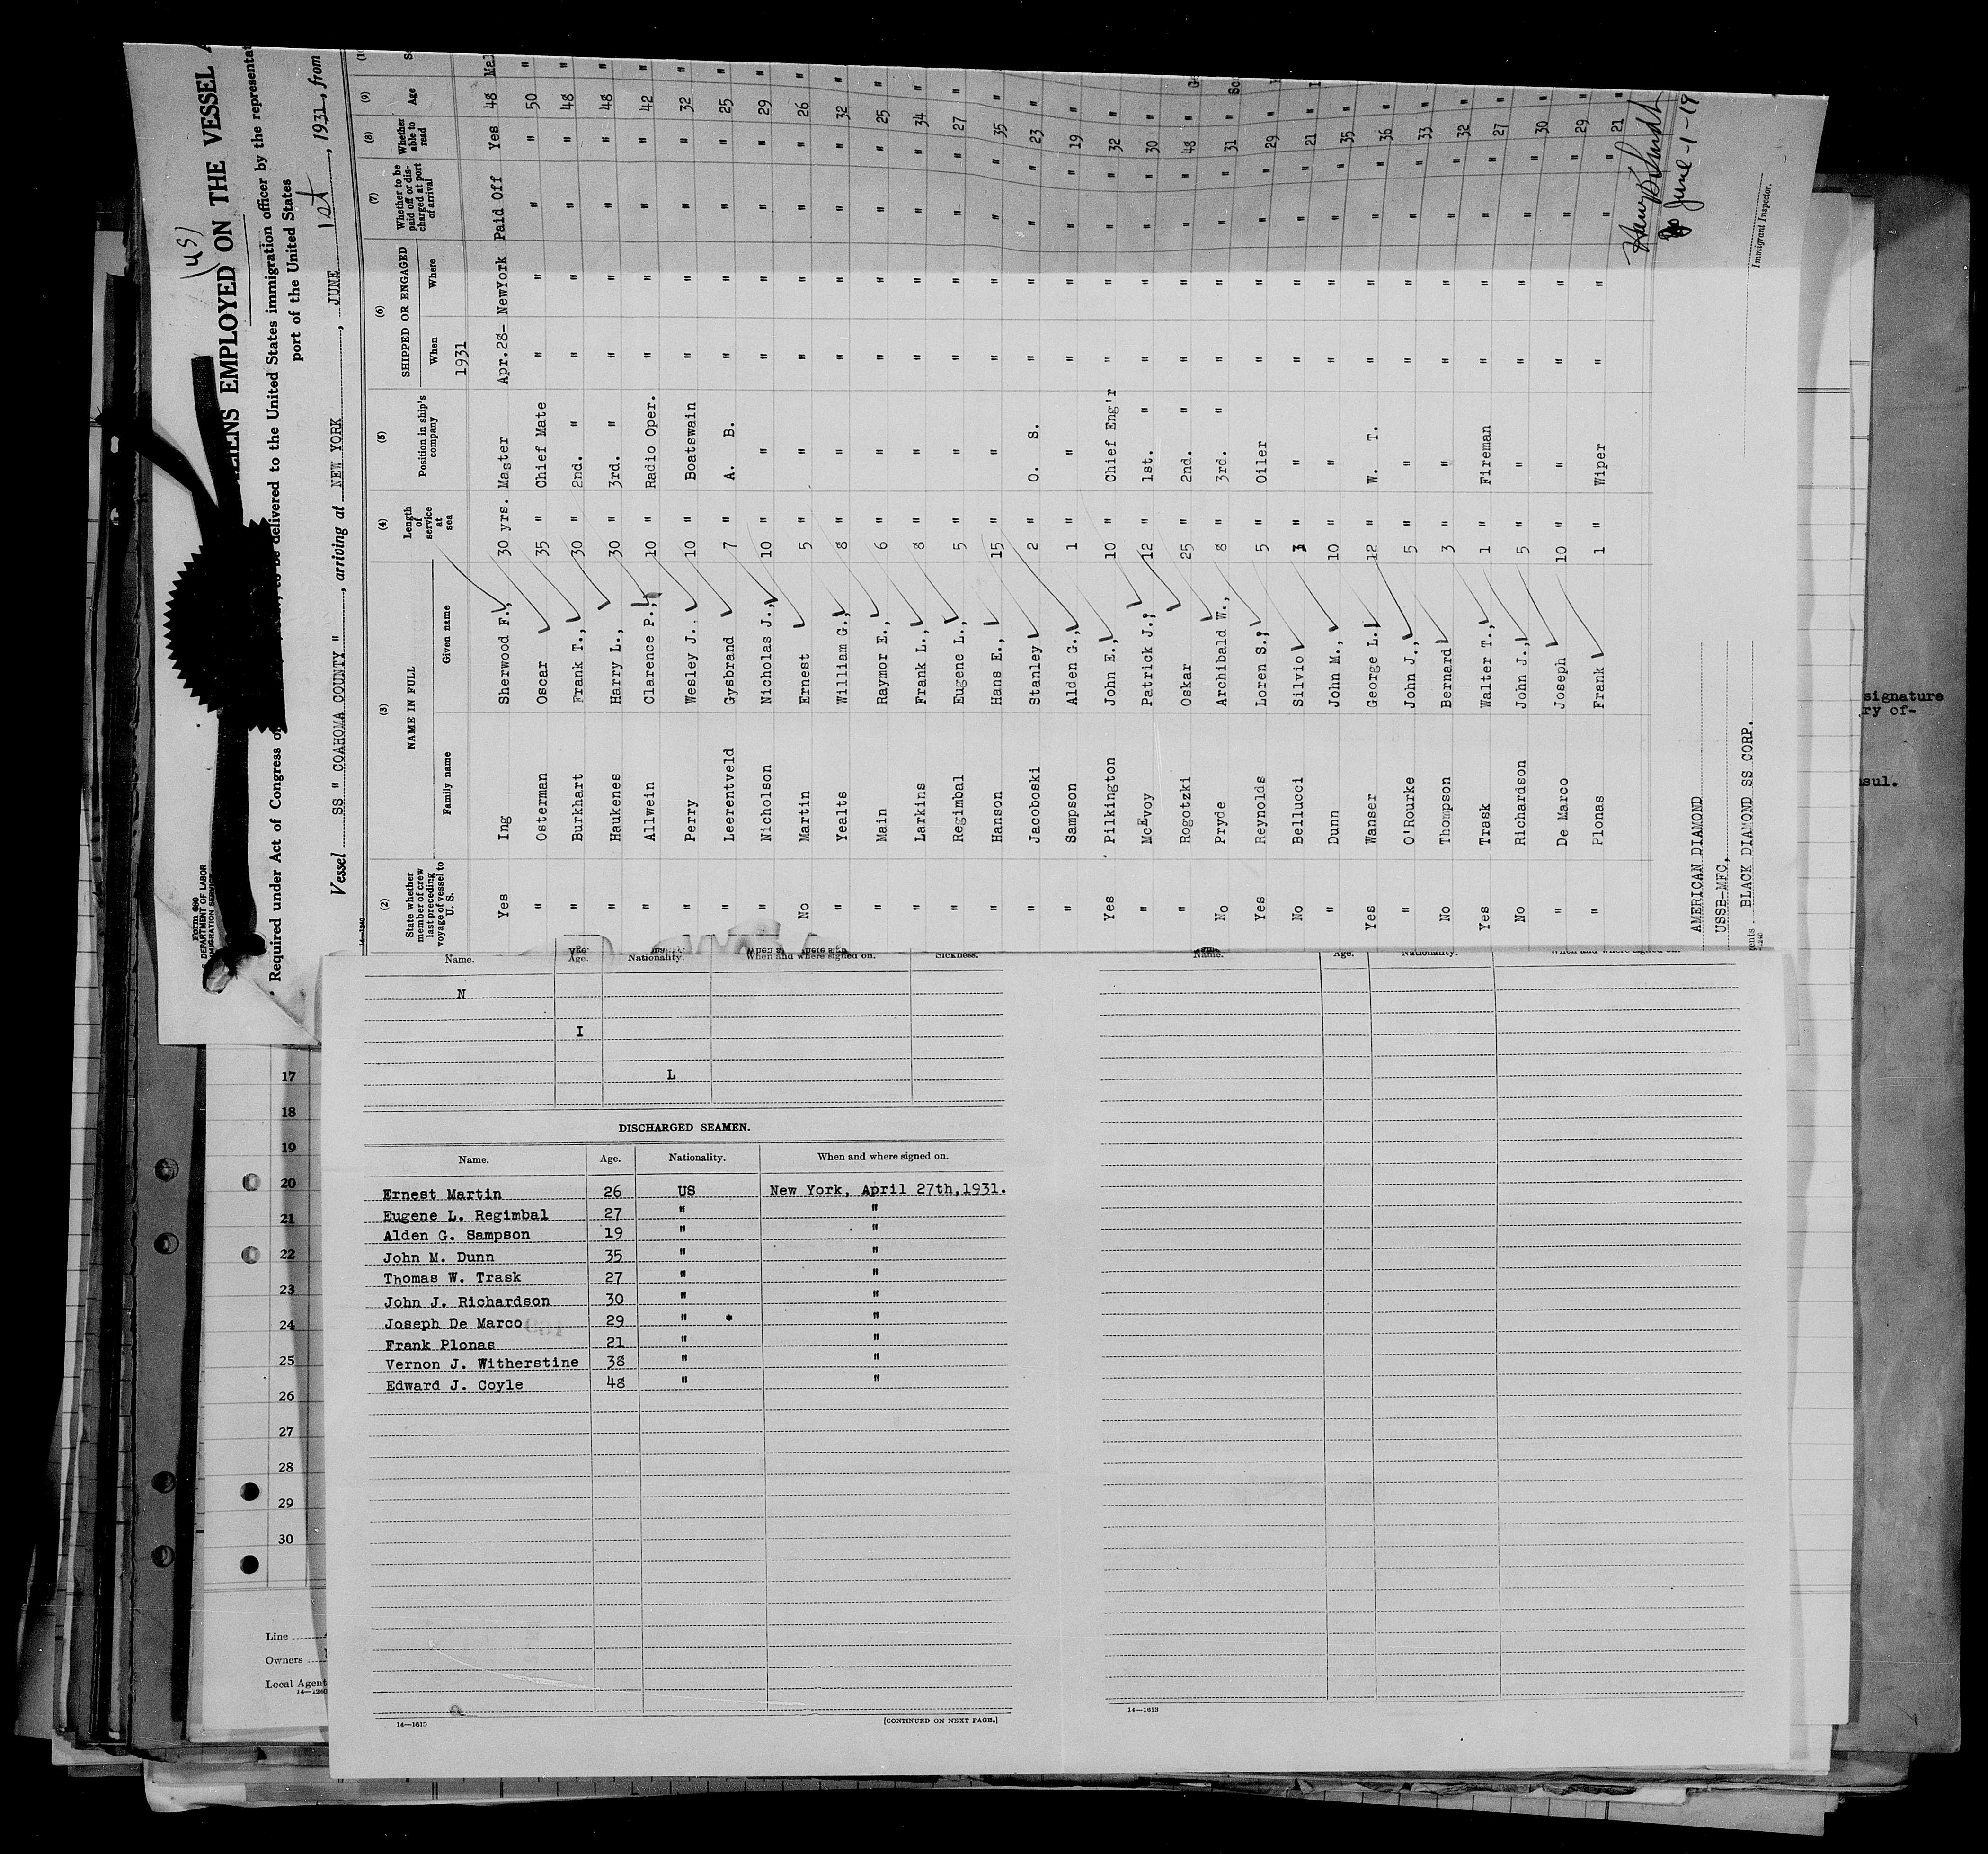 (US)
ENS EMPLOYED ON THE VESSEL
Form 680
DEPARTMENT OF LABOR
IMMIGRATION SERVICE
Required under Act of Congress
to be delivered to the United States immigration officer by the
port of the United States
Vessel SS " COAHOMA COUNTY ", arriving at NEW YORK, JUNE 1st, 1931, from
14—1240
(2) (3) (4) (5) (6) (7) (8) (9)
State whether member of crew last preceding voyage of vessel to U. S. NAME IN FULL Length of service at sea Position in ship's company SHIPPED OR ENGAGED Whether to be paid off or discharged at port of arrival Whether able to read Age
Family name Given name When Where
1931
Yes Ing Sherwood F., 30 yrs. Master Apr.28- NewYork Paid Off Yes 48 Mal
" Osterman Oscar 35 " Chief Mate " " " " 50 "
" Burkhart Frank T., 30 " 2nd. " " " " " 48 "
" Haukenes Harry L., 30 " 3rd. " " " " " 48 "
" Allwein Clarence P., 10 " Radio Oper. " " " " 42 "
" Perry Wesley J. 10 " Boatswain " " " " 32 "
" Leerentveld Gysbrand 7 " A. B. " " " " 25 "
" Nicholson Nicholas J., 10 " " " " " " 29 "
No Martin Ernest 5 " " " " " " 26 "
" Yealts William G., 8 " " " " " " 32 "
" Main Raymor E., 6 " " " " " " 25 "
" Larkins Frank L., 8 " " " " " " 34 "
" Regimbal Eugene L., 5 " " " " " " 27 "
" Hanson Hans E., 15 " " " " " " 35 "
" Jacoboski Stanley 2 " O. S. " " " " 23 "
" Sampson Alden G., 1 " " " " " " 19 "
Yes Pilkington John E., 10 " Chief Eng'r " " " " 32 "
" McEvoy Patrick J., 12 " 1st. " " " " " 30 "
" Rogotzki Oskar 25 " 2nd. " " " " " 48 "
No Pryde Archibald W., 8 " 3rd. " " " " " 31 "
Yes Reynolds Loren S., 5 " Oiler " " " " 29 "
No Bellucci Silvio " " " " " " 21 "
" Dunn John M., 10 " " " " " " 35 "
Yes Wanser George L. 12 " W. T. " " " " 36 "
" O'Rourke John J., 5 " " " " " " 33 "
No Thompson Bernard 3 " " " " " " 32 "
Yes Trask Walter T., 1 " Fireman " " " " 27 "
No Richardson John J., 5 " " " " " " 30 "
" De Marco Joseph 10 " " " " " " 29 "
" Plonas Frank 1 " Wiper " " " " 21 "
AMERICAN DIAMOND
USSB-MFC,
BLACK DIAMOND SS CORP.
June-1-19
Immigrant Inspector.
signature
ry of-
sul.
17
18
19
20
21
22
23
24
25
26
27
28
29
30
Line
Owners
Local Agent
14—1240
Name. Age. Nationality. When and where signed on. Sickness.
N
I
L
DISCHARGED SEAMEN.
Name. Age. Nationality. When and where signed on.
Ernest Martin 26 US New York, April 27th,1931.
Eugene L. Regimbal 27 " "
Alden G. Sampson 19 " "
John M. Dunn 35 " "
Thomas W. Trask 27 " "
John J. Richardson 30 " "
Joseph De Marco 29 " "
Frank Plonas 21 " "
Vernon J. Witherstine 38 " "
Edward J. Coyle 48 " "
14—1613
[CONTINUED ON NEXT PAGE.]
Name. Age. Nationality. When and where signed on.
14—1613